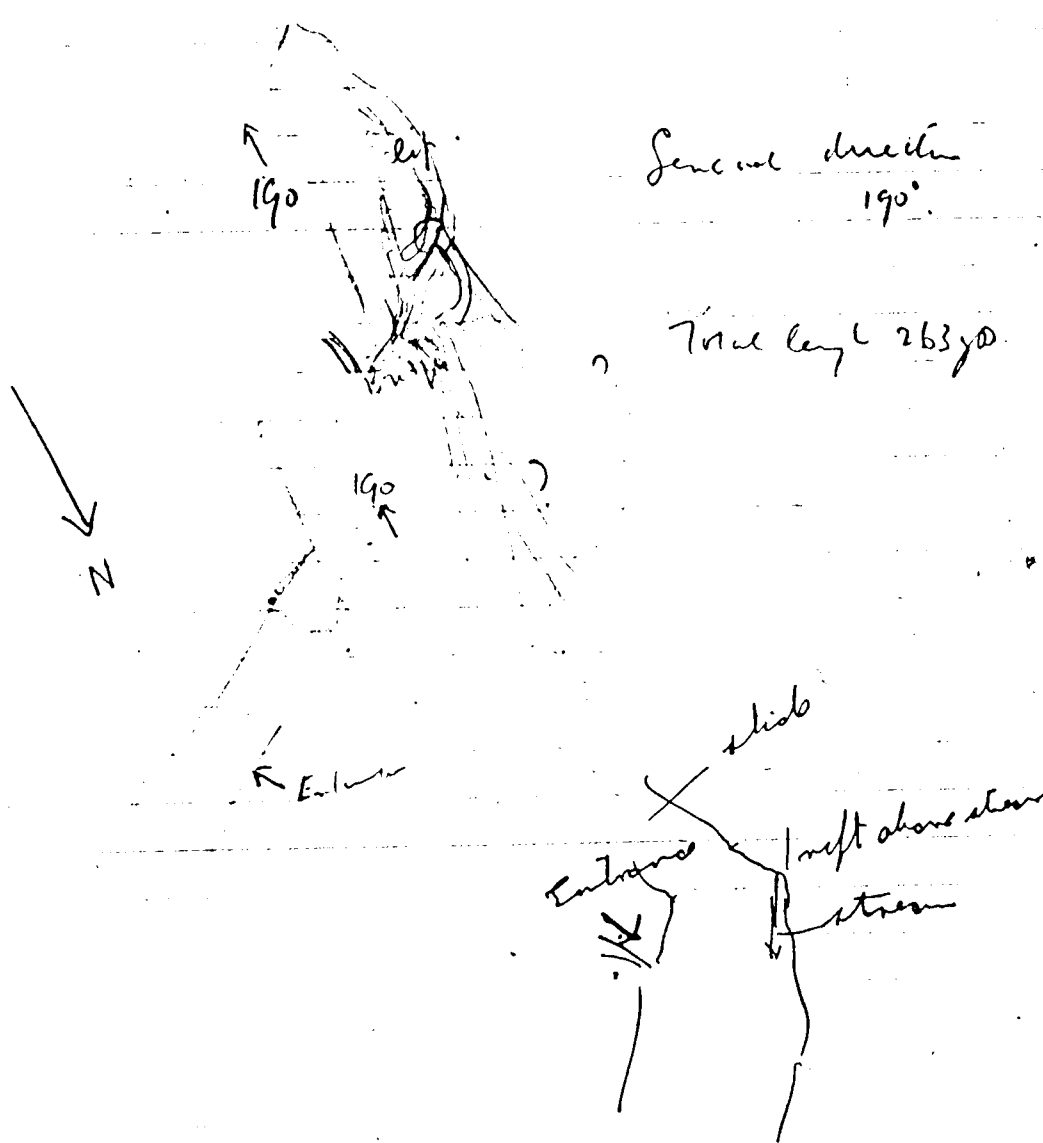 190
General direction
190°.
Total length 263 yds.
?
190
?
N
Entrance
slide
Entrance
rift above stream
stream